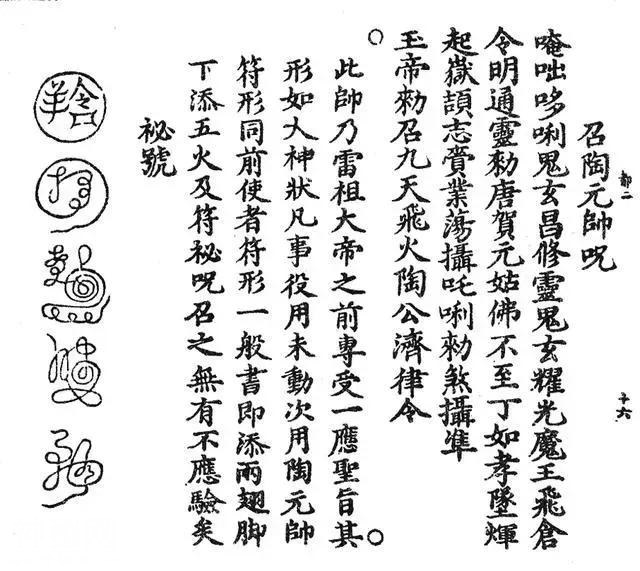 召陶元帥呪
唵咄哆唎鬼玄昌修靈鬼玄耀光魔王飛倉
令明通靈勑唐賀元姑佛不至丁如孝墜煇
起嶽頡志賫業蕩攝吒唎勑煞攝凖
玉帝勑召九天飛火陶公濟律令
此帥乃雷祖大帝之前專受一應聖旨其
形如大神狀凡事役用未動次用陶元帥
符形同前使者符形一般書即添兩翅脚
下添五火及符祕呪召之無有不應驗矣
祕號
十六